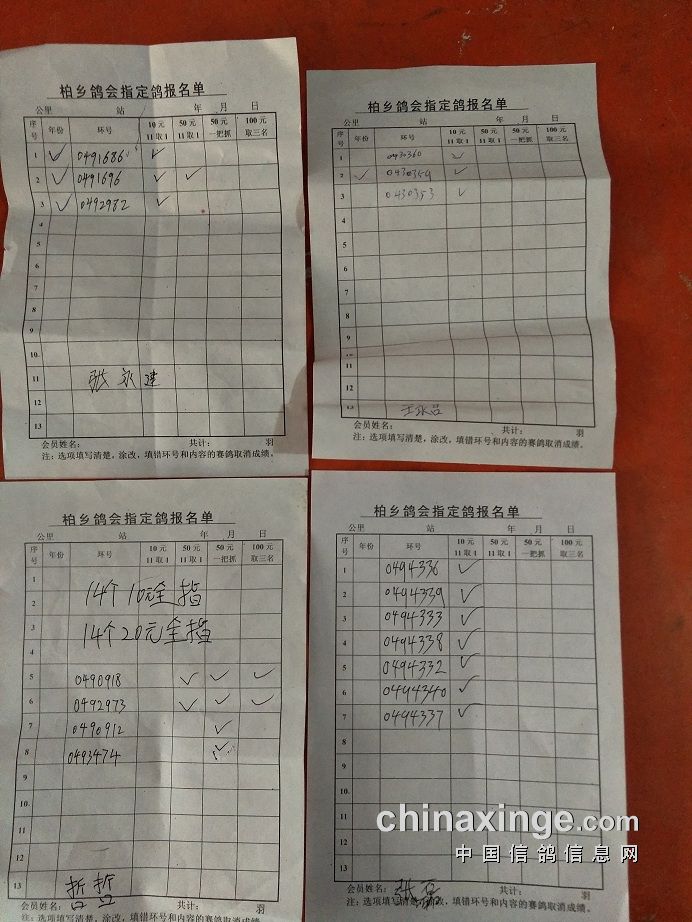 柏乡鸽会指定鸽报名单
公里 站 年 月 日
序号 年份 环号 10元11取1 50元11取1 50元一把抓 100元取三名
1 ✓ 0491686 ✓
2 ✓ 0491696 ✓ ✓
3 ✓ 0492982 ✓
4
5
6
7
8
9
10
11 张永建
12
13
会员姓名： 共计： 羽
注：选项填写清楚，涂改，填错环号和内容的赛鸽取消成绩。
柏乡鸽会指定鸽报名单
公里 站 年 月 日
序号 年份 环号 10元11取1 50元11取1 50元一把抓 100元取三名
1 0430360 ✓
2 ✓ 0430359 ✓
3 0430353 ✓
4
5
6
7
8
9
10
11
12
13
会员姓名： 共计： 羽
注：选项填写清楚，涂改，填错环号和内容的赛鸽取消成绩。
柏乡鸽会指定鸽报名单
公里 站 年 月 日
序号 年份 环号 10元11取1 50元11取1 50元一把抓 100元取三名
1
2 14个10元全指
3 14个20元全指
4
5 0490918 ✓ ✓ ✓
6 0492973 ✓ ✓ ✓
7 0490912 ✓
8 0493474 ✓
9
10
11
12
13
会员姓名： 哲哲 共计： 羽
注：选项填写清楚，涂改，填错环号和内容的赛鸽取消成绩。
柏乡鸽会指定鸽报名单
公里 站 年 月 日
序号 年份 环号 10元11取1 50元11取1 50元一把抓 100元取三名
1 0494336 ✓
2 0494339 ✓
3 0494333 ✓
4 0494338 ✓
5 0494332 ✓
6 0494340 ✓
7 0494337 ✓
8
9
10
11
12
13
会员姓名： 张磊 共计： 羽
注：选项填写清楚，涂改，填错环号和内容的赛鸽取消成绩。
chinaxinge.com
中国信鸽信息网